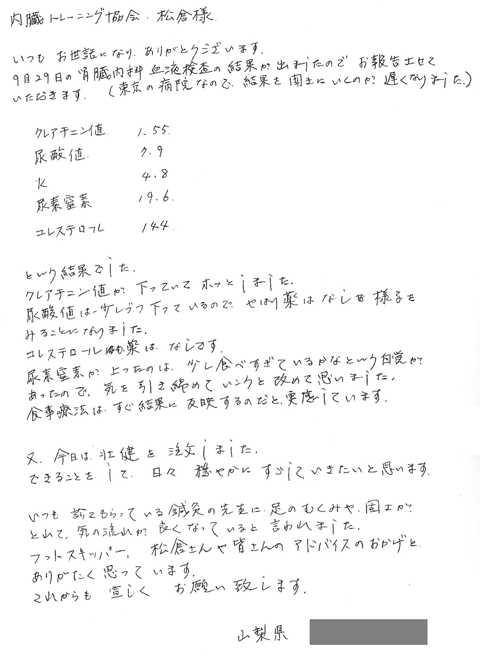 内臓トレーニング協会・松倉様
いつもお世話になり、ありがとうございます。
9月29日の腎臓内科 血液検査の結果が出ましたので お報告させて
いただきます。（東京の病院なので、結果を聞きにいくのが 遅くなりました。）
クレアチニン値 1.55
尿酸値 7.9
K 4.8
尿素窒素 19.6
コレステロール 144
という結果でした。
クレアチニン値が、下っていて ホッとしました。
尿酸値は少しづつ下っているので、やはり薬はなしで様子を
みることになりました。
コレステロールも薬は、なしです。
尿素窒素が上ったのは、少し食べすぎているかなという自覚が
あったので、気を引き締めていこうと改めて思いました。
食事療法は、すぐ結果に反映するのだと実感しています。
又、今日は 壮健を注文しました。
できることをして、日々 穏やかに すごしていきたいと思います。
いつも 診てもらっている鍼灸の先生に、足のむくみや、固さが
とれて、気の流れが良くなっていると言われました。
フットスキッパー、松倉さんや皆さんのアドバイスのおかげと、
ありがたく思っています。
これからも 宜しく お願い致します。
山梨県